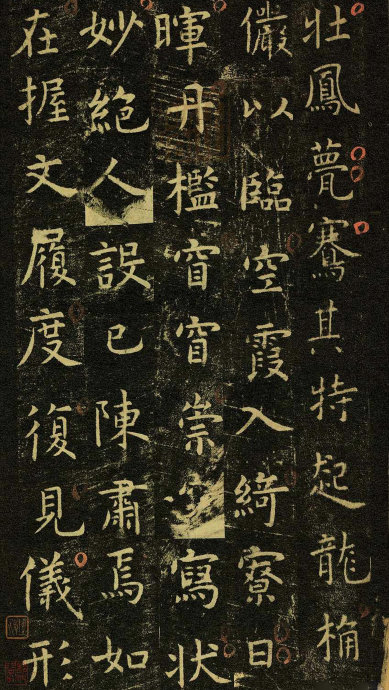 壯鳳甍騫其特起龍桷
儼以臨空霞入綺寮日
暉丹檻窅窅崇寫狀
妙絕人設已陳肅焉如
在握文履度復見儀形